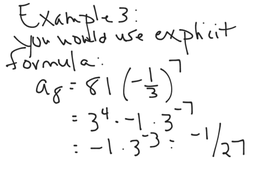 Example 3:
you would use explicit
formula:
a₈ = 81 (-1/3)⁷
= 3⁴ · -1 · 3⁻⁷
= -1 · 3⁻³ = -1/27